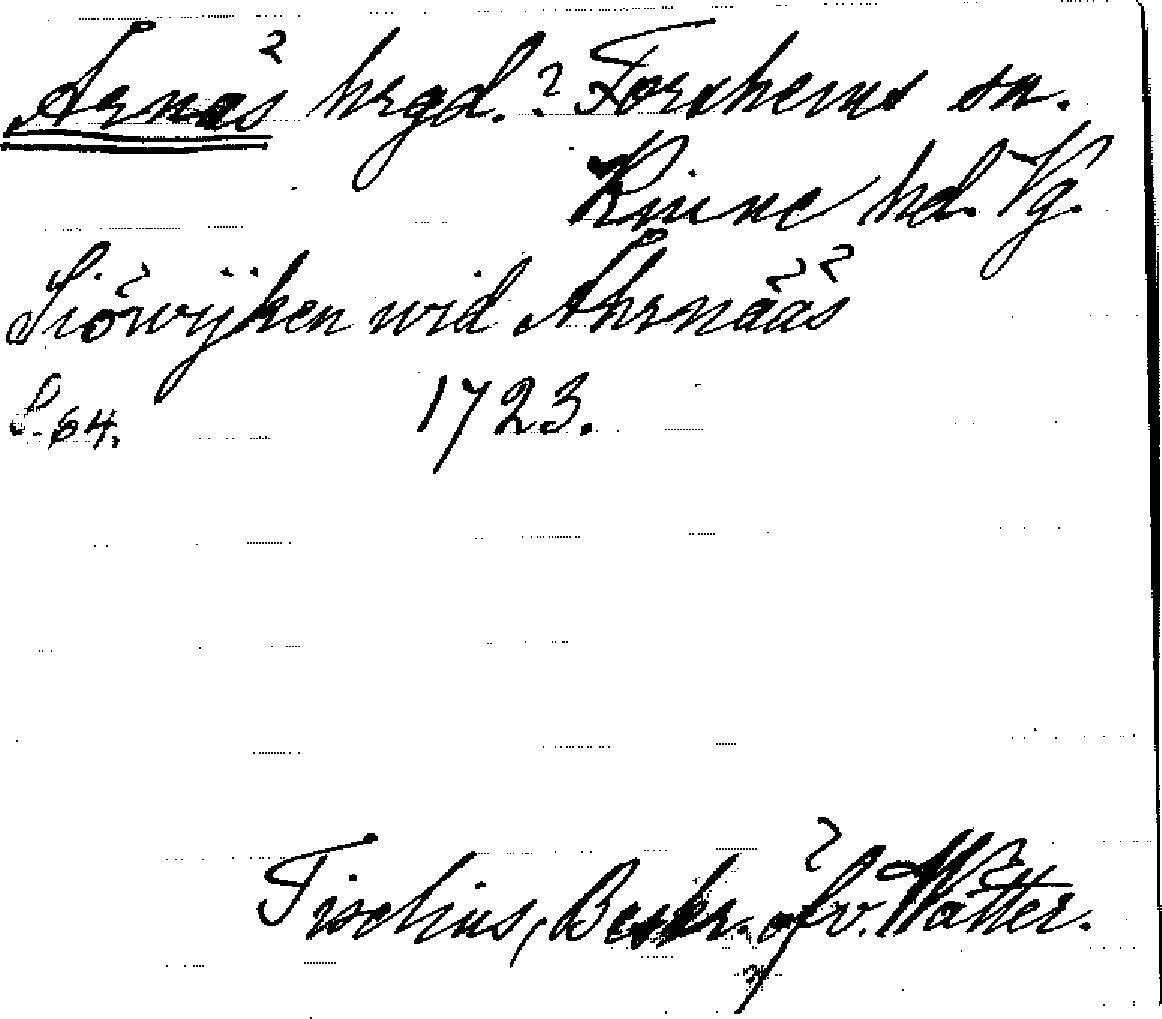 Årnäs hrgd.? Forshems sn.
Kinne hd. Vg.
Siöwijken wid Åhrnääs
S. 64. 1723.
Tiselius, Beskr. öfv. Wätter.